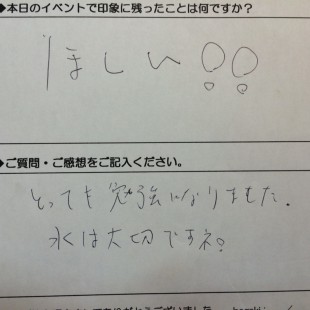 ◆本日のイベントで印象に残ったことは何ですか？
ほしい!!
◆ご質問・ご感想をご記入ください。
とっても勉強になりました。
水は大切ですネ!